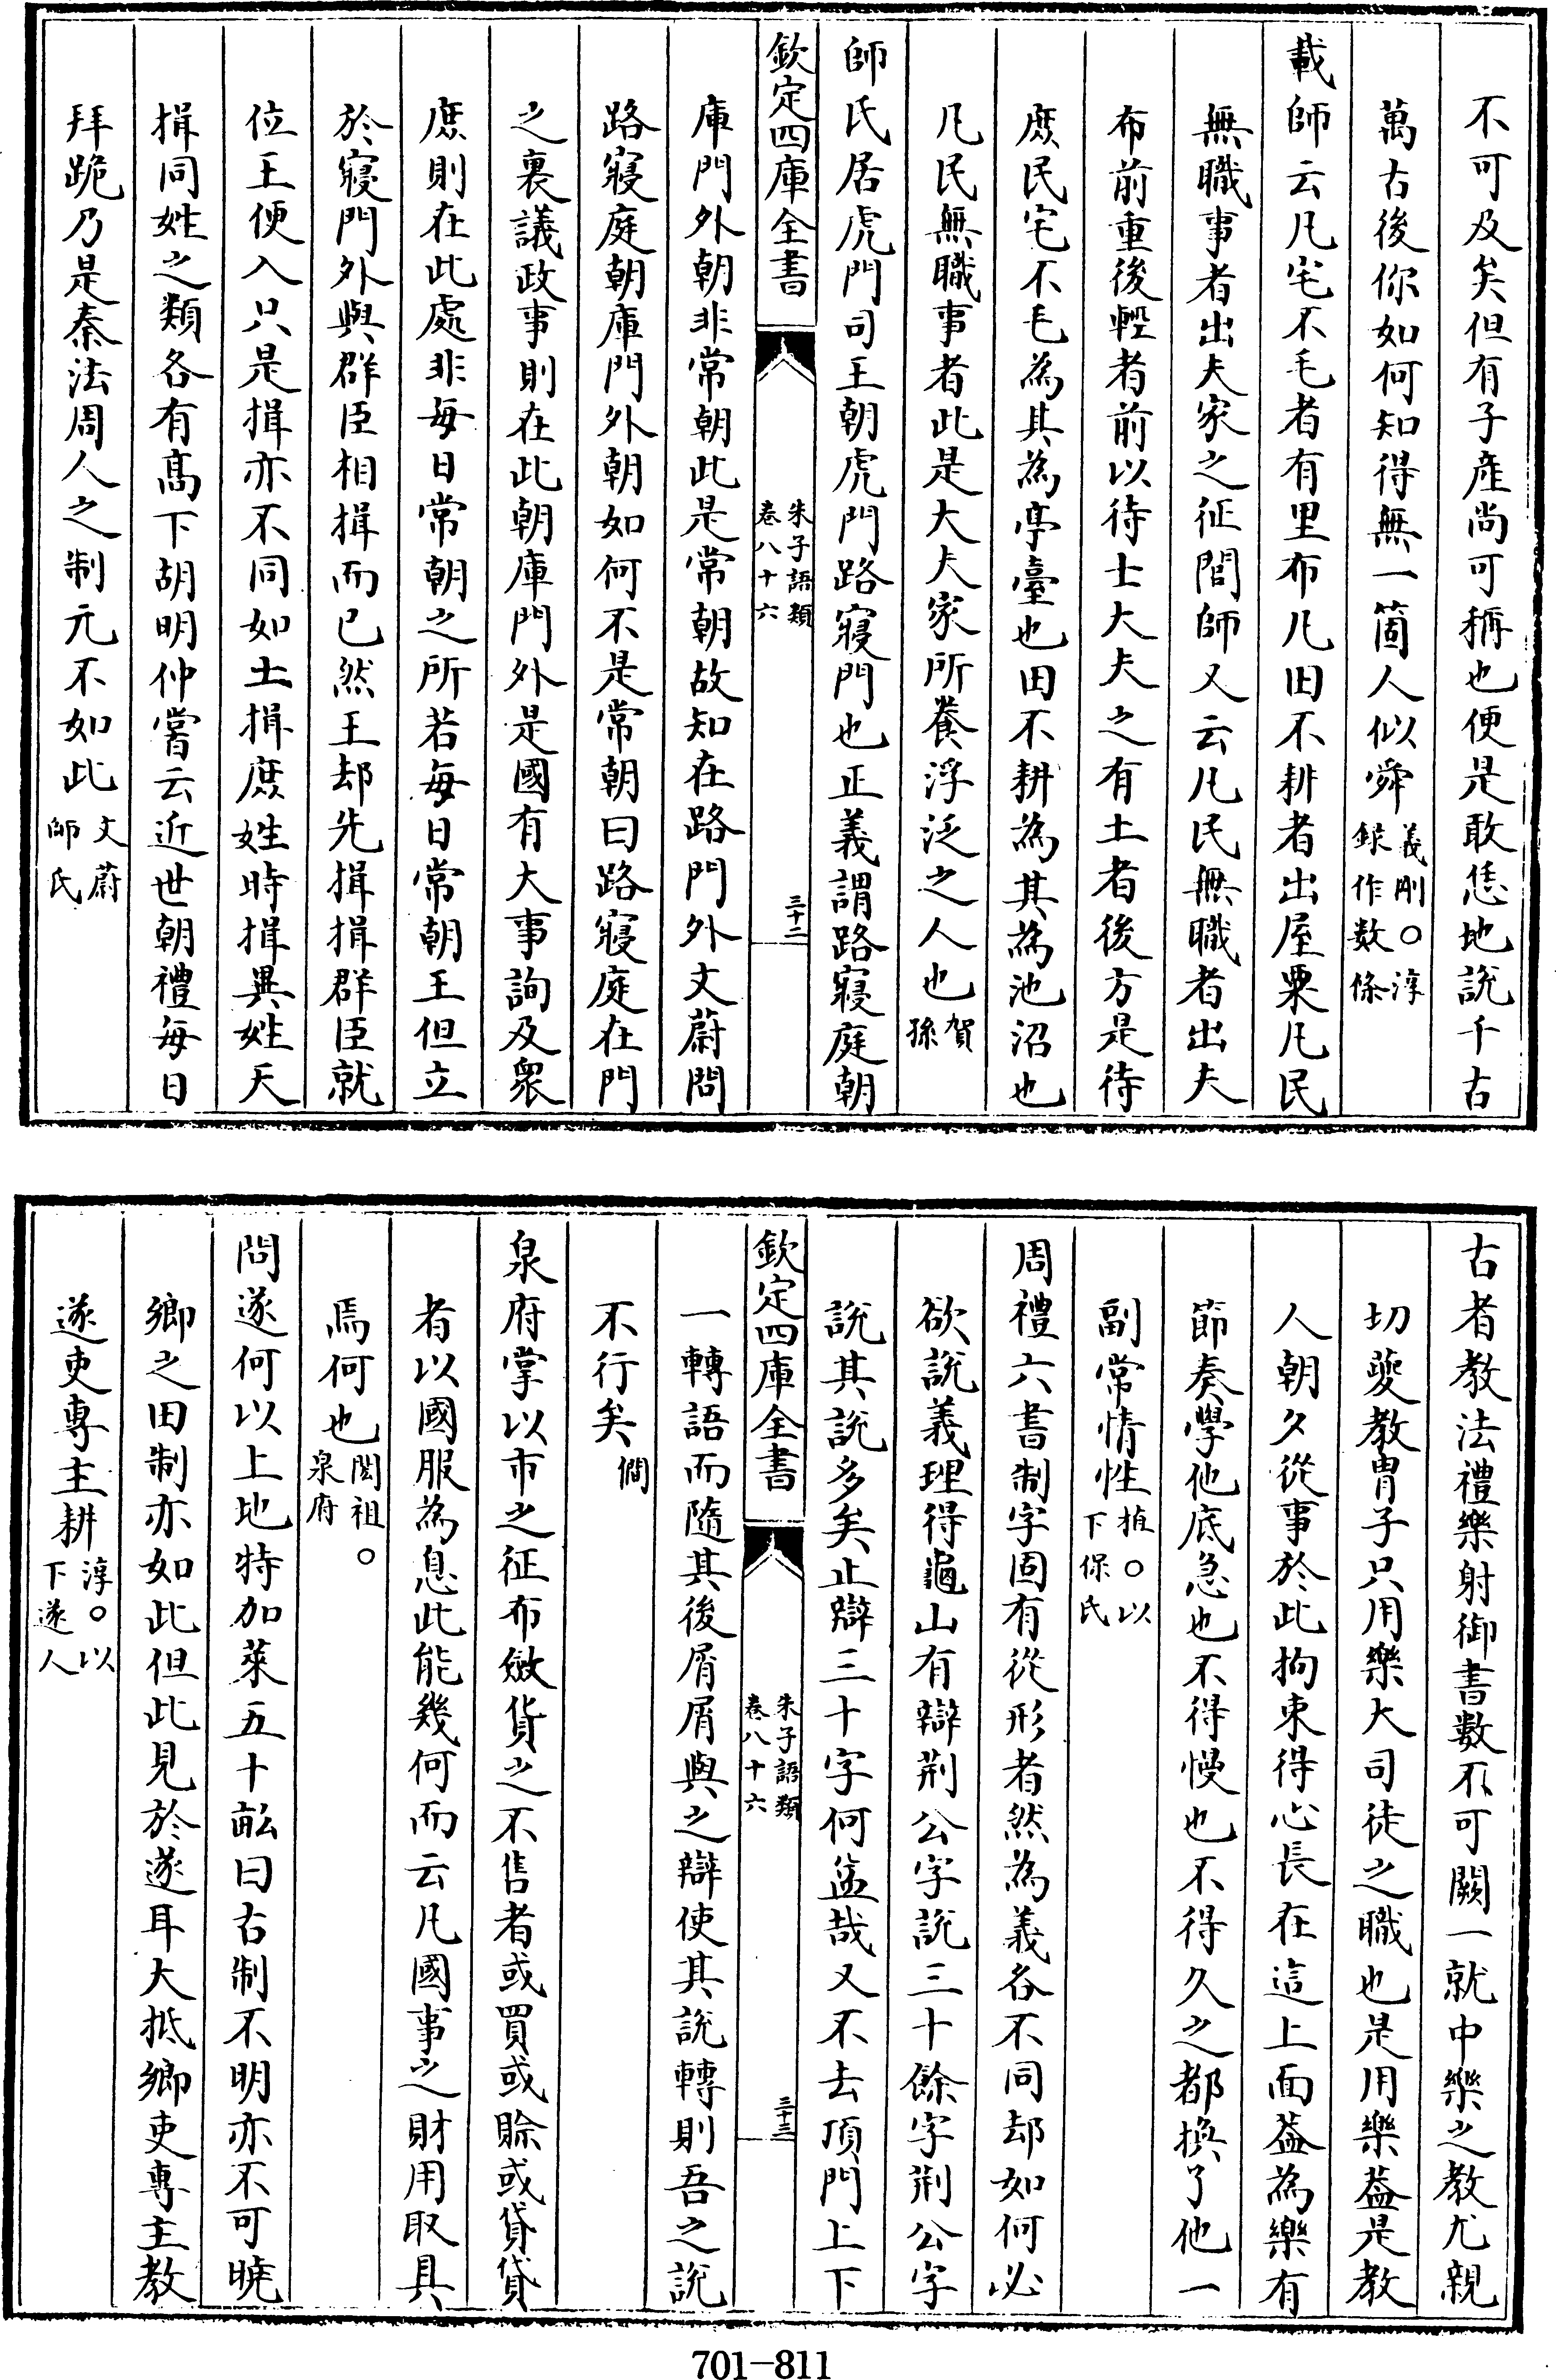 不可及矣但有子產尚可稱也便是敢恁地說千古
萬古後你如何知得無一箇人似舜義剛○淳錄作數條
載師云凡宅不毛者有里布凡田不耕者出屋粟凡民
無職事者出夫家之征閭師又云凡民無職者出夫
布前重後輕者前以待士大夫之有土者後方是待
庶民宅不毛為其為亭臺也田不耕為其為池沼也
凡民無職事者此是大夫家所養浮泛之人也賀孫
師氏居虎門司王朝虎門路寢門也正義謂路寢庭朝
欽定四庫全書
朱子語類
卷八十六
三十二
庫門外朝非常朝此是常朝故知在路門外文蔚問
路寢庭朝庫門外朝如何不是常朝曰路寢庭在門
之裏議政事則在此朝庫門外是國有大事詢及衆
庶則在此處非每日常朝之所若每日常朝王但立
於寢門外與群臣相揖而已然王却先揖揖群臣就
位王便入只是揖亦不同如土揖庶姓時揖異姓天
揖同姓之類各有高下胡明仲嘗云近世朝禮每日
拜跪乃是秦法周人之制元不如此文蔚師氏
古者教法禮樂射御書數不可闕一就中樂之教尤親
切夔教胄子只用樂大司徒之職也是用樂葢是教
人朝夕從事於此拘束得心長在這上面葢為樂有
節奏學他底急也不得慢也不得久之都換了他一
副常情性植○以下保氏
周禮六書制字固有從形者然為義各不同却如何必
欲說義理得龜山有辯荆公字說三十餘字荆公字
說其說多矣止辯三十字何益哉又不去頂門上下
欽定四庫全書
朱子語類
卷八十六
三十三
一轉語而隨其後屑屑與之辯使其說轉則吾之說
不行矣僩
泉府掌以市之征布斂貨之不售者或買或賒或貸貸
者以國服為息此能幾何而云凡國事之財用取具
焉何也閎祖○泉府
問遂何以上地特加萊五十畝曰古制不明亦不可曉
鄉之田制亦如此但此見於遂耳大抵鄉吏專主教
遂吏專主耕淳○以下遂人
701-811